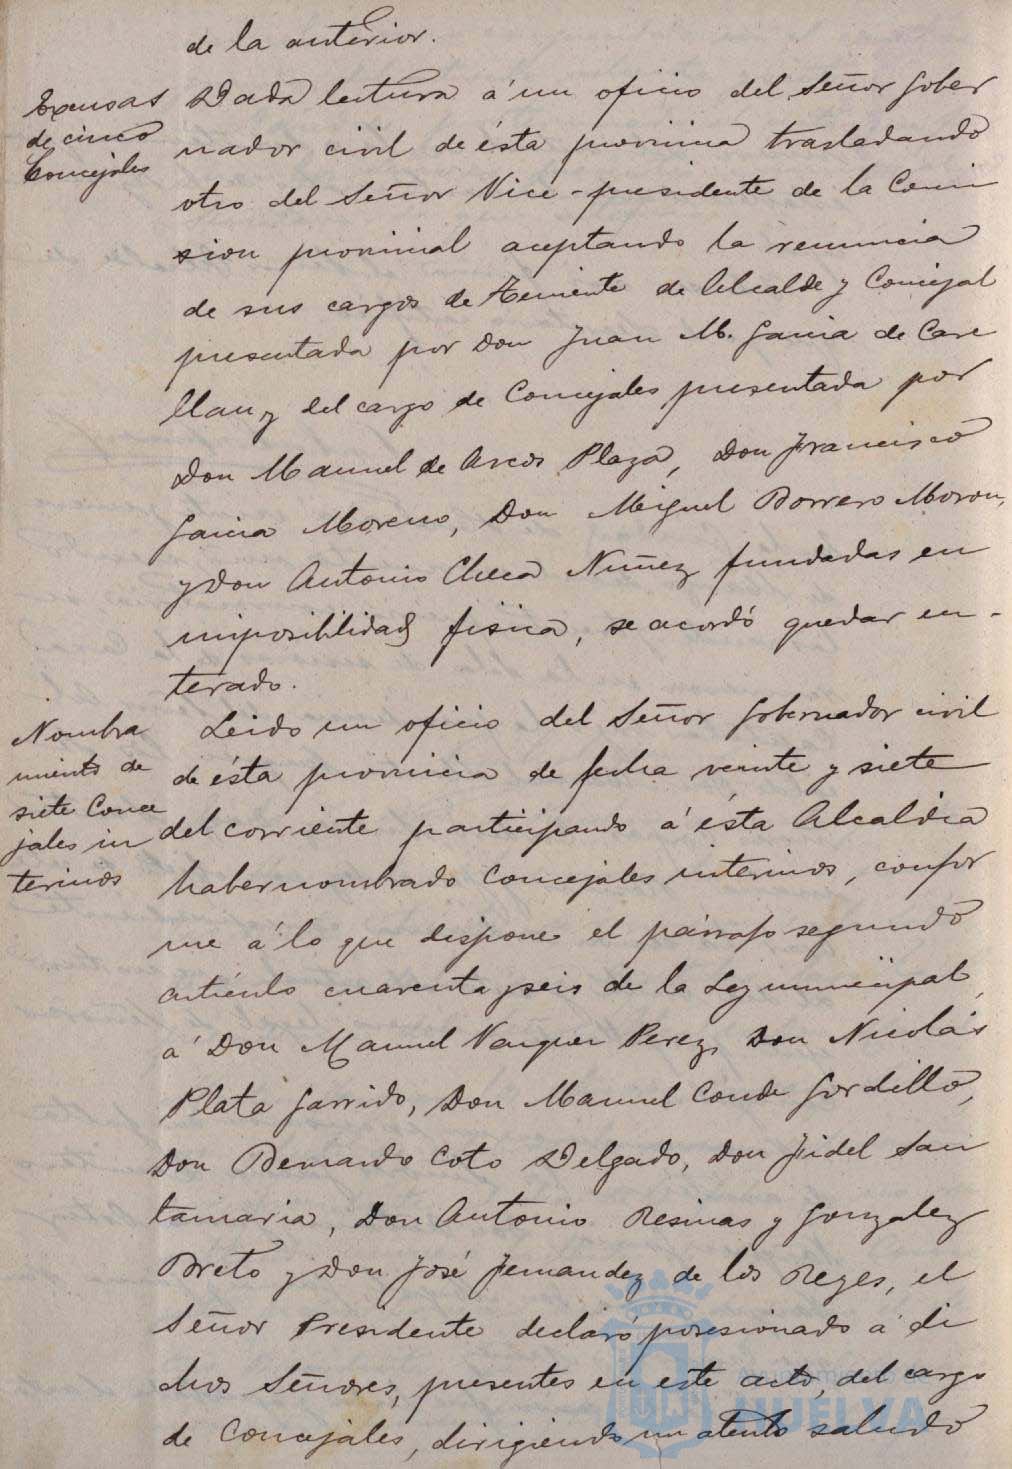 de la anterior.
Excusas
de cinco
Concejales
Dada lectura á un oficio del Señor Gober
nador civil de ésta provincia trasladando
otro del Señor Vice-presidente de la Comi
sion provincial aceptando la renuncia
de sus cargos de Teniente de Alcalde y Concejal
presentada por Don Juan M. Garcia de Care
llan, y del cargo de Concejales presentada por
Don Manuel de Arcos Plaza, Don Francisco
Garcia Moreno, Don Miguel Borrero Moron,
y Don Antonio Checa Nuñez fundadas en
imposibilidad fisica, se acordó quedar en-
terado.
Nombra
miento de
siete Conce
jales in
terinos
Leido un oficio del Señor Gobernador civil
de ésta provincia de fecha veinte y siete
del corriente participando á ésta Alcaldia
haber nombrado Concejales interinos, confor
me á lo que dispone el párrafo segundo
articulo cuarenta y seis de la Ley municipal,
á Don Manuel Vazquez Perez, Don Nicolás
Plata Garrido, Don Manuel Conde Gordillo,
Don Bernardo Coto Delgado, Don Fidel San
tamaria, Don Antonio Resinas y Gonzalez
Breto y Don José Fernandez de los Reyes, el
Señor Presidente declaró posesionado á di
chos Señores, presentes en este acto, del cargo
de Concejales, dirigiendo un atento saludo
Ayuntamiento de
HUELVA